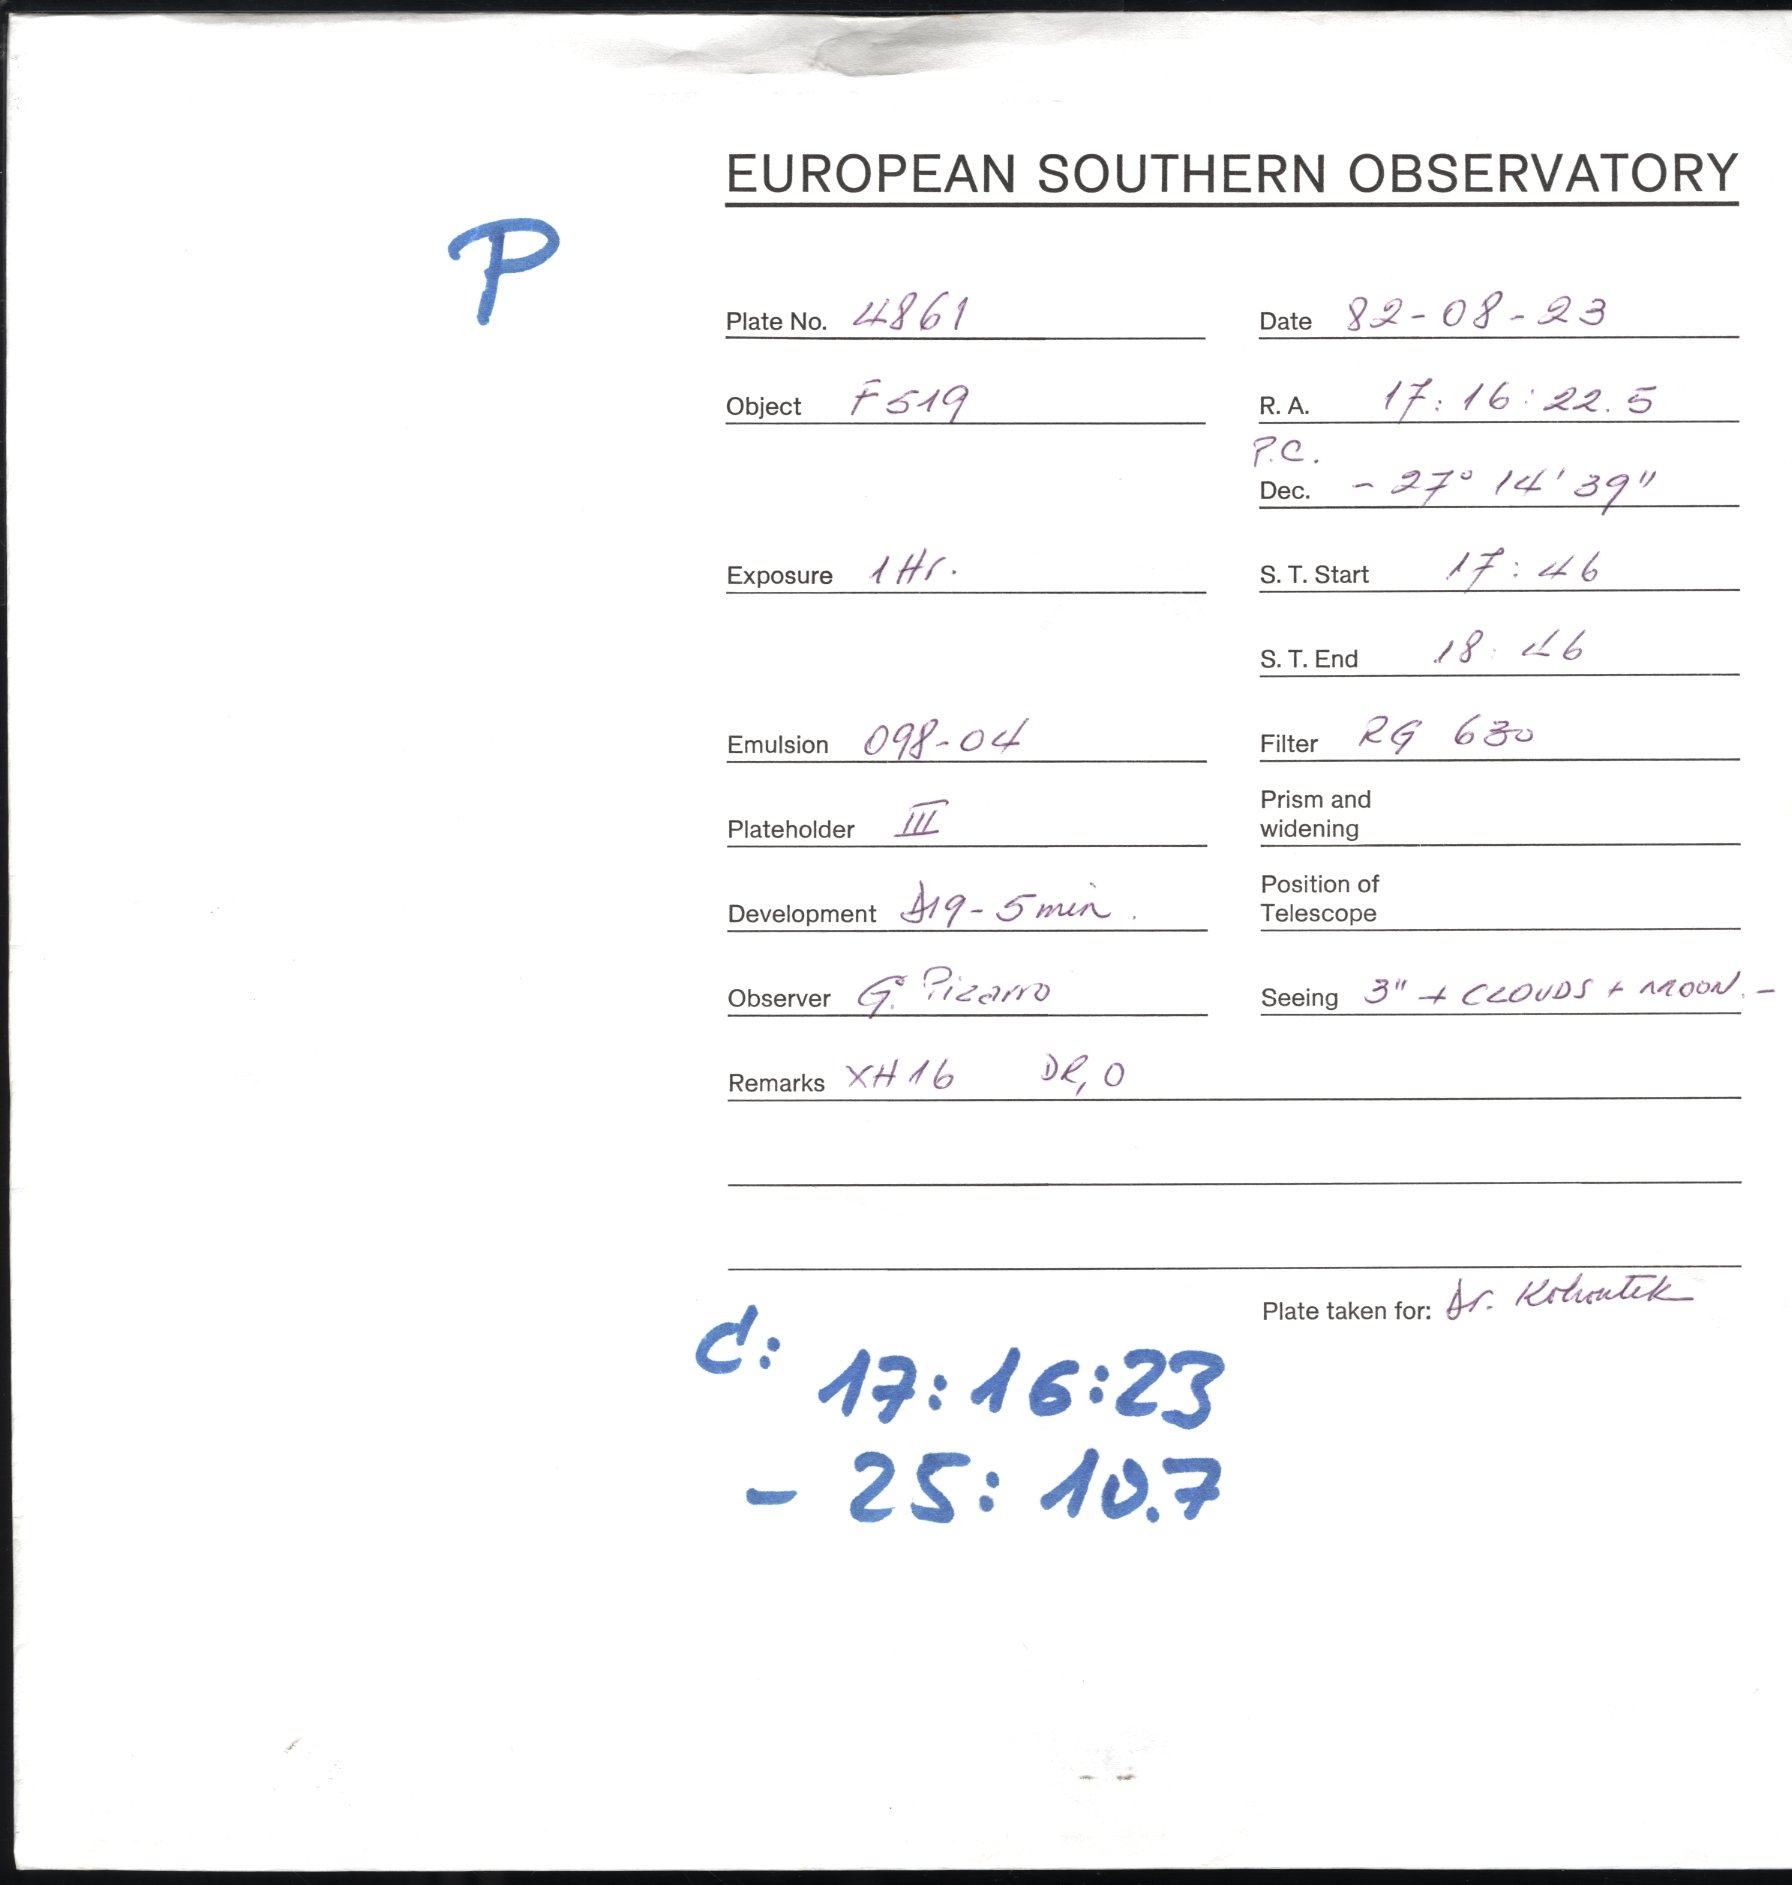 EUROPEAN SOUTHERN OBSERVATORY
P
Plate No. 4861 Date 82-08-23
Object F519 R. A. 17:16:22.5
P.C.
Dec. - 27° 14' 39"
Exposure 1 Hr. S. T. Start 17:46
S. T. End 18:46
Emulsion 098-04 Filter RG 630
Plateholder III Prism and widening
Development D19-5 min. Position of Telescope
Observer G. Pizarro Seeing 3" + CLOUDS + MOON. -
Remarks XH16 DR, O
Plate taken for: Dr. Kohoutek
C:
17:16:23
- 25: 10.7